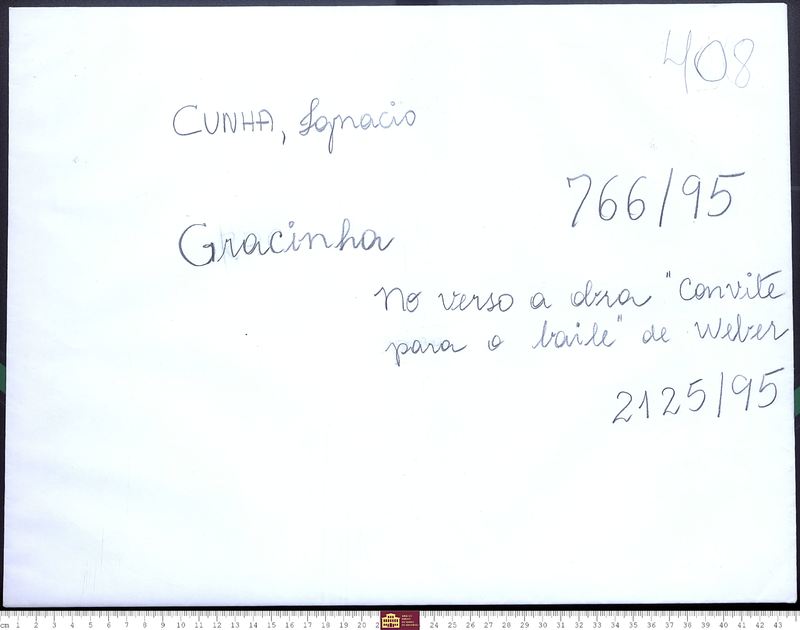 408
CUNHA, Ignacio
766/95
Gracinha
No verso a obra "Convite
para o baile" de Weber
2125/95
cm 1 2 3 4 5 6 7 8 9 10 11 12 13 14 15 16 17 18 19 20 21 2 24 25 26 27 28 29 30 31 32 33 34 35 36 37 38 39 40 41 42 43